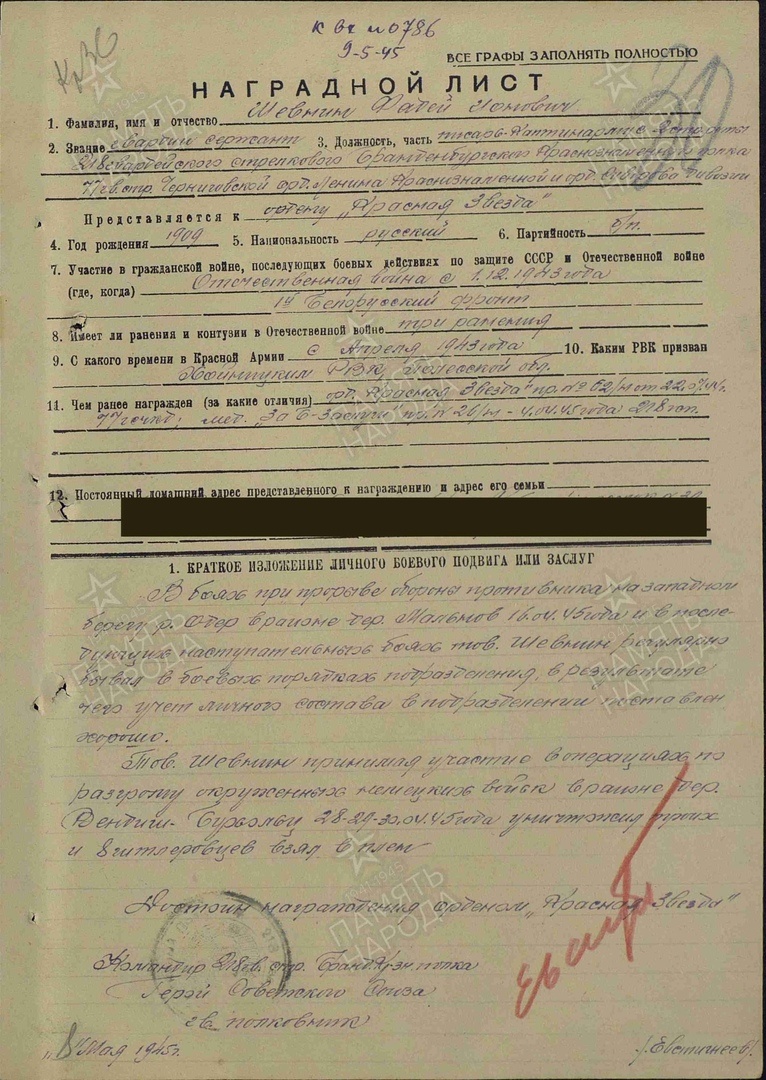 КрЗв
к вх № 0786
9-5-45
ВСЕ ГРАФЫ ЗАПОЛНЯТЬ ПОЛНОСТЬЮ
НАГРАДНОЙ ЛИСТ
1. Фамилия, имя и отчество Шевнин Фатей Ионович
2. Звание гвардии сержант 3. Должность, часть писарь-каптинармус
218 гвардейского стрелкового Бранденбургского Краснознаменного полка
77 гв. стр. Черниговской орд. Ленина Краснознаменной и орд. Суворова дивизии
Представляется к ордену „Красная Звезда"
4. Год рождения 1909 5. Национальность русский 6. Партийность б/п.
7. Участие в гражданской войне, последующих боевых действиях по защите СССР и Отечественной войне
(где, когда) Отечественная война с 1.12.1943 года
1й Белорусский фронт
8. Имеет ли ранения и контузии в Отечественной войне три ранения
9. С какого времени в Красной Армии с Апреля 1943 года 10. Каким РВК призван
Хойникским РВК, Полесской обл.
11. Чем ранее награжден (за какие отличия) орд. „Красная Звезда" пр. № 62/н от
мед. „За Б-Заслуги" пр. № 26/н - 4.04.45 года 218 гсп.
12. Постоянный домашний адрес представленного к награждению и адрес его семьи
1. КРАТКОЕ ИЗЛОЖЕНИЕ ЛИЧНОГО БОЕВОГО ПОДВИГА ИЛИ ЗАСЛУГ
В боях при прорыве обороны противника на западном
берегу р. Одер в районе дер. Мальнов 16.04.45 года и в после-
дующих наступательных боях тов. Шевнин регулярно
бывал в боевых порядках подразделения, в результате
чего учет личного состава в подразделении поставлен
хорошо.
Тов. Шевнин принимая участие в операциях по
разгрому окруженных немецких войск в районе дер.
Вендиш-Бухгольц 28-29-30.04.45 года уничтожил троих
и 8 гитлеровцев взял в плен
Достоин награждения орденом „Красная Звезда"
Командир 218 гв. стр. Бранд. Кр.зн. полка
Герой Советского Союза
гв. полковник
„8" Мая 1945 г.
/Евстигнеев/
ПАМЯТЬ
НАРОДА